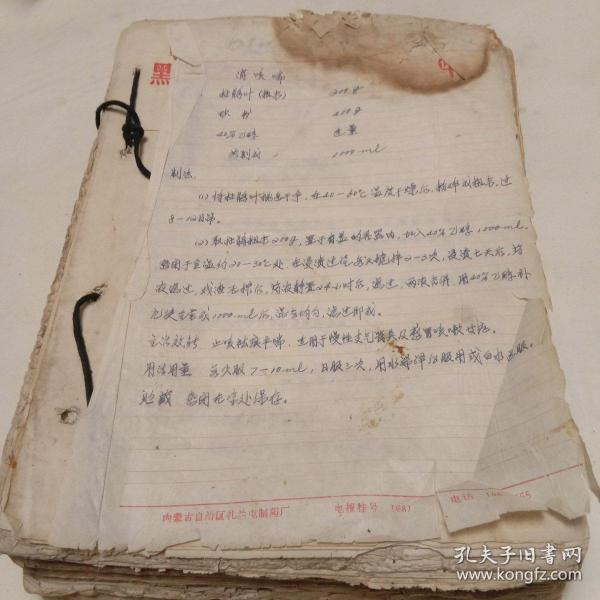 黑
消咳喘
杜鹃叶(粗末) 200g
40%乙醇 适量
共制成 1000ml
制法
(1) 将杜鹃叶挑选干净，在40-60℃温度干燥后，粉碎成粗末，过
8-10目筛。
(2) 取杜鹃粗末200g，置于有盖的容器内，加入40%乙醇1000ml，
密闭于室温约20-30℃处，在浸渍过程每天搅拌2-3次，浸渍七天后，将
液滤过，残渣压榨后，榨液静置24小时后，滤过，两液合併，用40%乙醇补
充使全量成1000ml后，混合均匀，滤过即成。
主治效能 止咳祛痰平喘，适用于慢性支气管炎及感冒咳嗽
用法用量 每次服7-10ml，日服三次，用水稀释后服用或白水送服。
贮藏 密闭在 处保存。
内蒙古自治区扎兰屯制药厂 电报挂号 1687
电话
孔夫子旧书网
www.kongfz.com